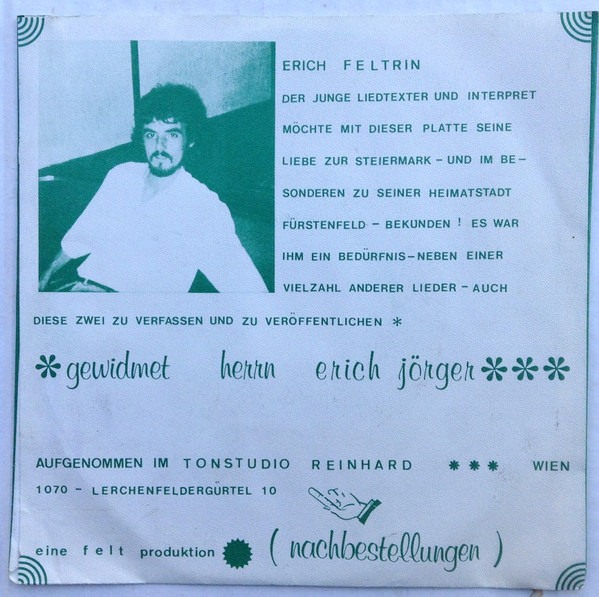 ERICH FELTRIN
DER JUNGE LIEDTEXTER UND INTERPRET
MÖCHTE MIT DIESER PLATTE SEINE
LIEBE ZUR STEIERMARK – UND IM BE–
SONDEREN ZU SEINER HEIMATSTADT
FÜRSTENFELD – BEKUNDEN ! ES WAR
IHM EIN BEDÜRFNIS – NEBEN EINER
VIELZAHL ANDERER LIEDER – AUCH
DIESE ZWEI ZU VERFASSEN UND ZU VERÖFFENTLICHEN *
* gewidmet herrn erich jörger ***
AUFGENOMMEN IM TONSTUDIO REINHARD *** WIEN
1070 – LERCHENFELDERGÜRTEL 10
eine felt produktion ( nachbestellungen )